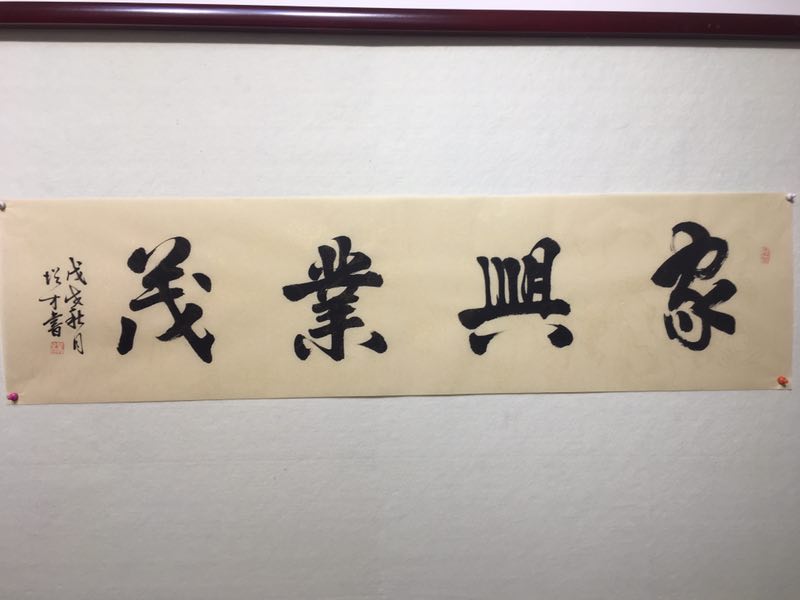 家興業茂
戊戌秋月
增才書